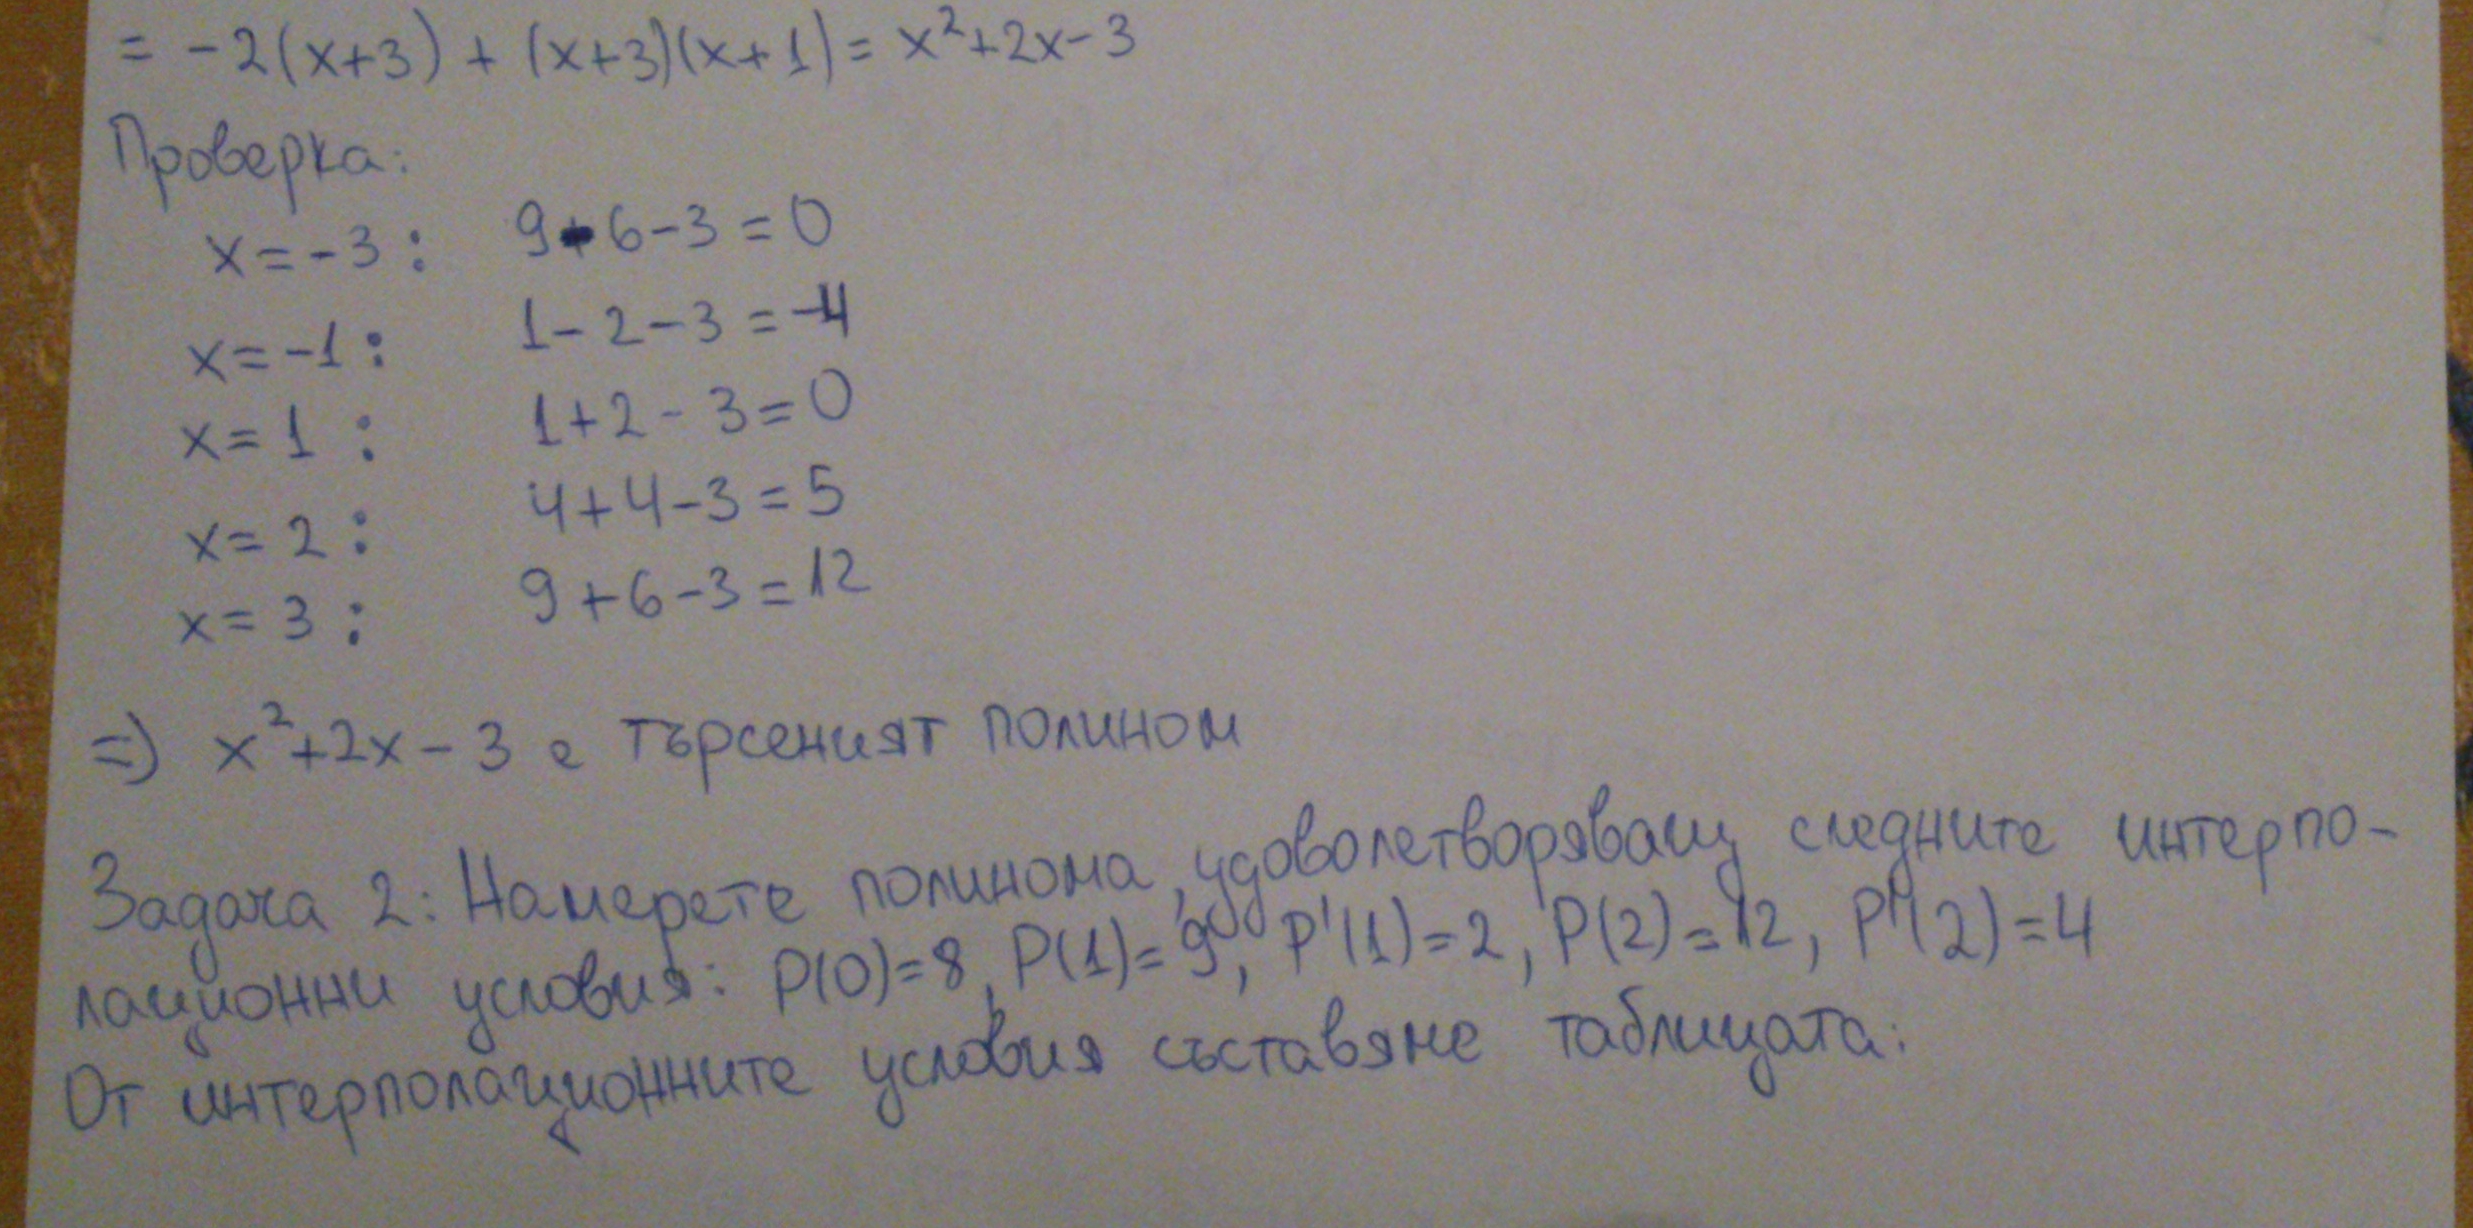 = -2(x+3) + (x+3)(x+1) = x²+2x-3
Проверка:
x = -3 : 9-6-3 = 0
x = -1 : 1-2-3 = -4
x = 1 : 1+2-3 = 0
x = 2 : 4+4-3 = 5
x = 3 : 9+6-3 = 12
=> x²+2x-3 е търсеният полином
Задача 2: Намерете полинома, удоволетворяващ следните интерпо-
лационни условия: P(0)=8, P(1)=9, P'(1)=2, P(2)=12, P'(2)=4
От интерполационните условия съставяне таблицата: